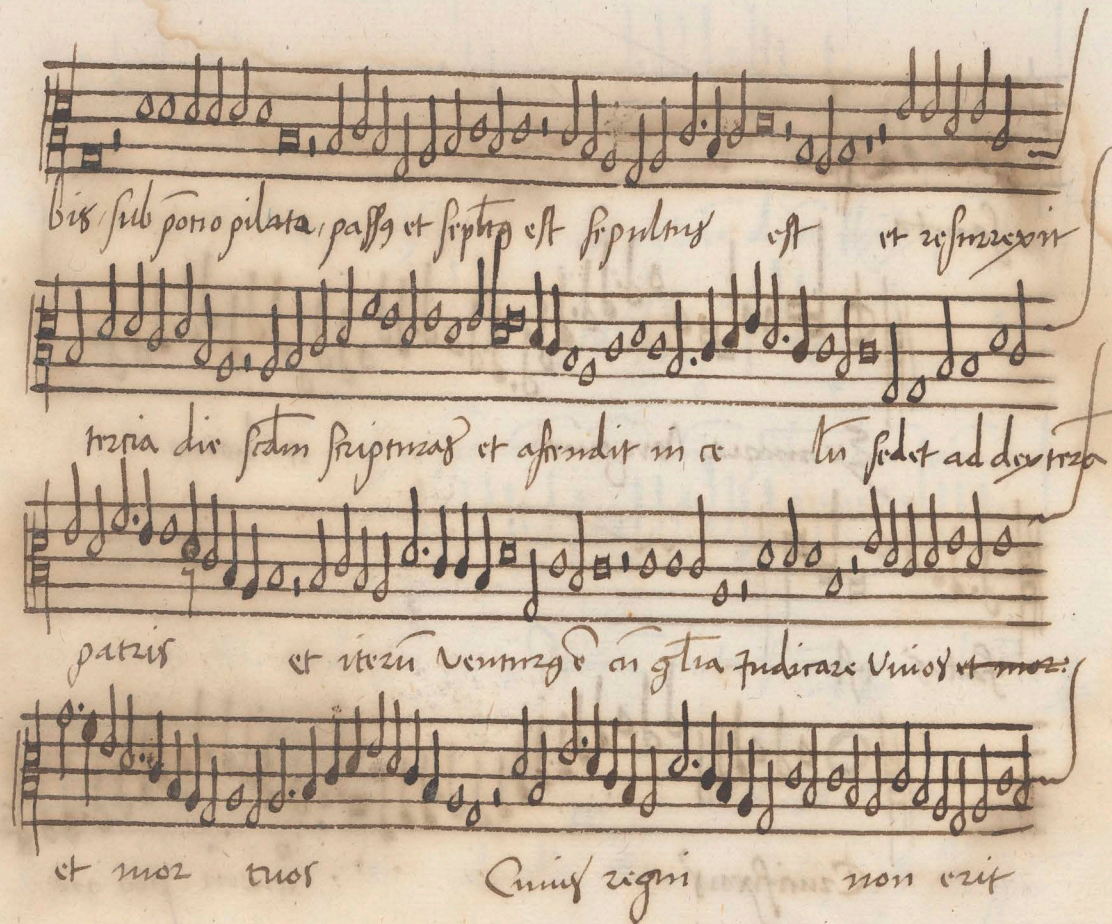 bis, sub põtio pilata, passꝯ et sepl̃tꝯ est sepultus est et resurrexit
tercia die scd̃m scripturas et ascendit in ce lũ sedet ad dexterã
patris et iterũ venturꝯ ẽ cũ gl̃ia Iudicare vivos et mor:
et mor tuos Cuius regni non erit